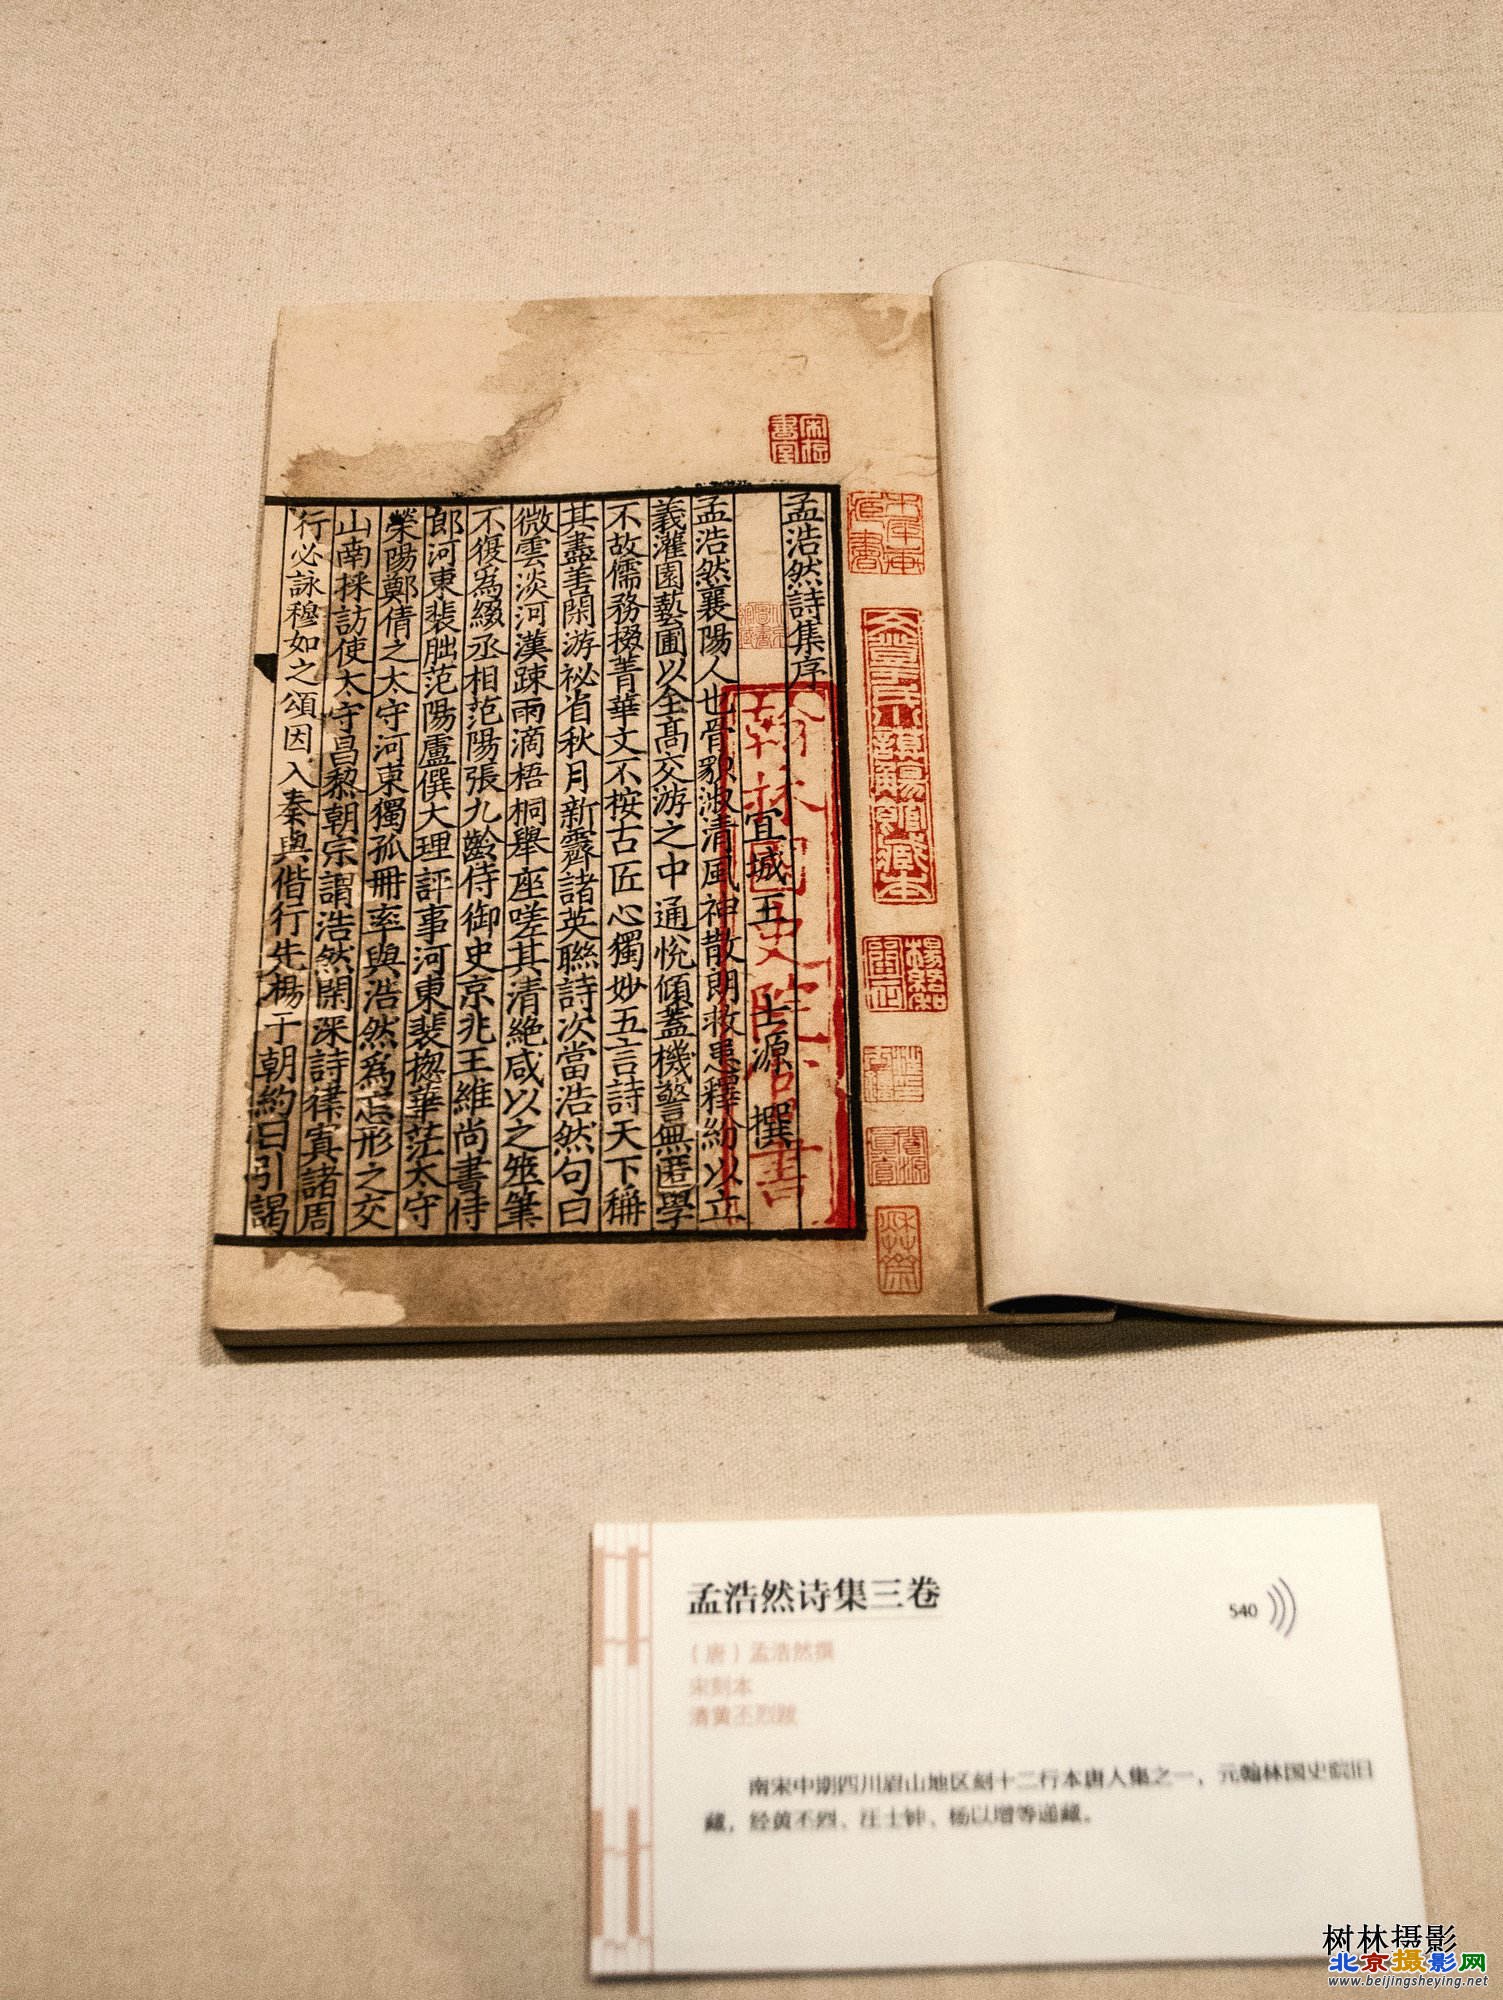 孟浩然詩集序
宜城王士源撰
孟浩然襄陽人也骨貌淑清風神散朗救患釋紛以立
義灌園藝圃以全高交游之中通悅傾蓋機警無匿學
不故儒務掇菁華文不按古匠心獨妙五言詩天下稱
其盡善閑游祕省秋月新霽諸英聯詩次當浩然句曰
微雲淡河漢踈雨滴梧桐舉座嗟其清絶咸以之閣筆
不復為綴丞相范陽張九齡侍御史京兆王維尚書侍
郎河東裴朏范陽盧僎大理評事河東裴揔華茫太守
榮陽鄭倩之太守河東獨孤冊率與浩然為忘形之交
山南採訪使太守昌黎朝宗謂浩然閑深詩律寘諸周
行必詠穆如之頌因入秦與偕行先楊于朝約日引謁
翰林國史院官書
宋存書室
孟浩然诗集三卷
540
（唐）孟浩然撰
宋刻本
清黄丕烈跋
南宋中期四川眉山地区刻十二行本唐人集之一，元翰林国史院旧
藏，经黄丕烈、汪士钟、杨以增等递藏。
树林摄影
北京摄影网
www.beijingsheying.net